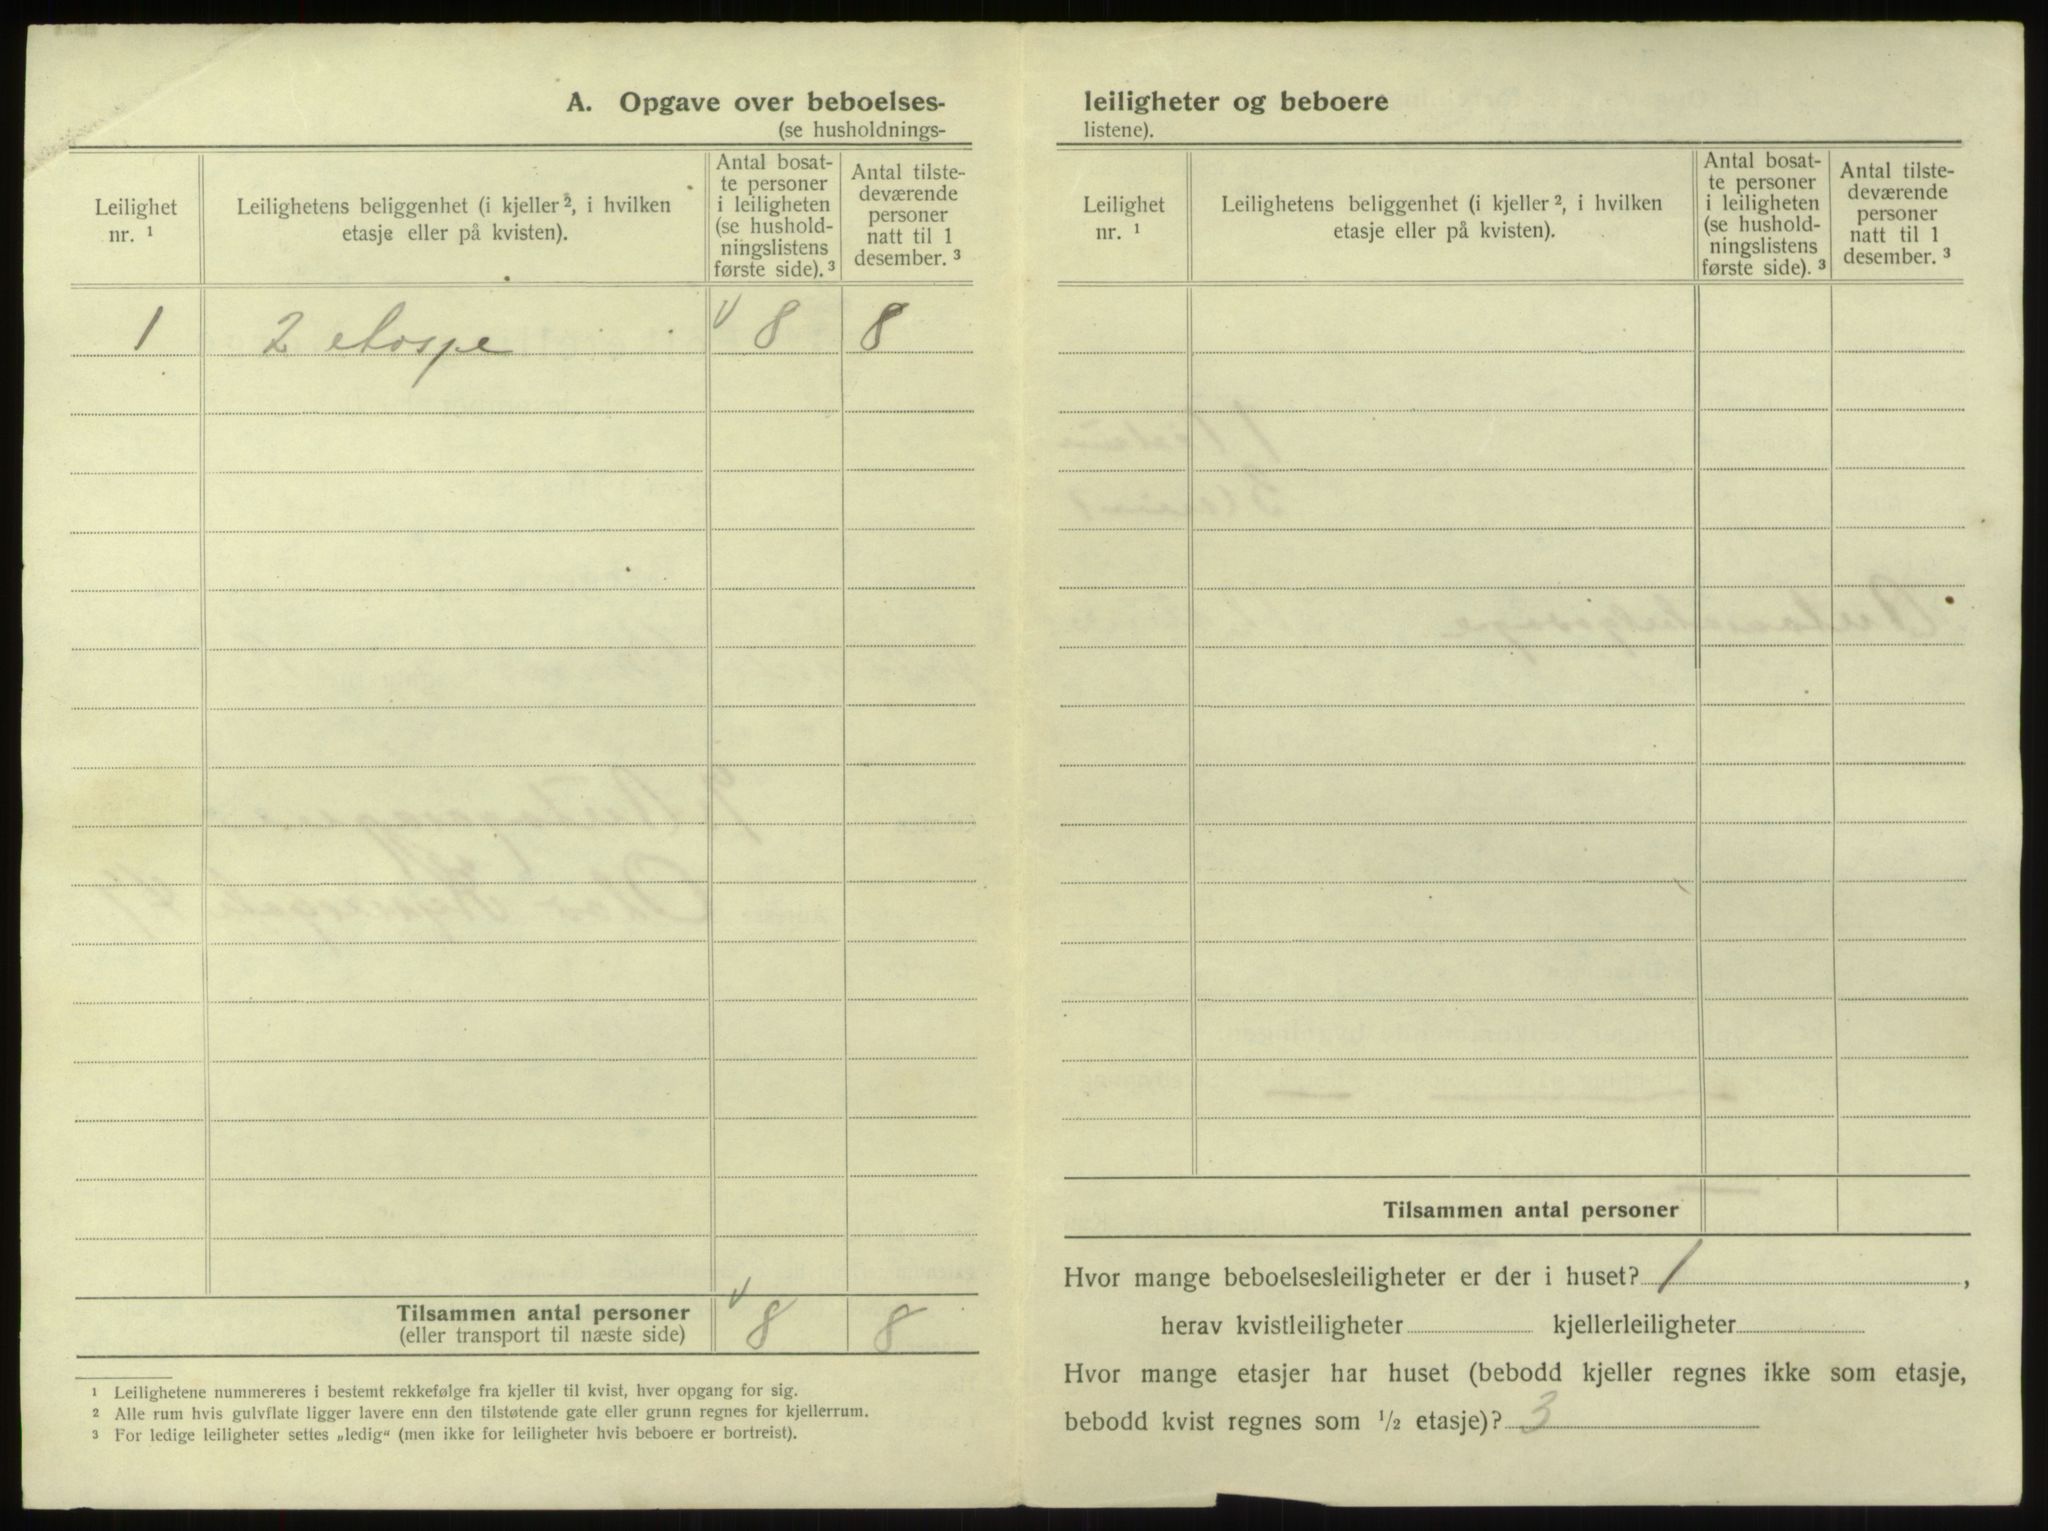 A. Opgave over beboelses-
(se husholdnings-
Leilighet nr. 1
Leilighetens beliggenhet (i kjeller 2, i hvilken
etasje eller på kvisten).
Antal bosat-
te personer
i leiligheten
(se hushold-
ningslistens
første side). 3
Antal tilste-
deværende
personer
natt til 1
desember. 3
1 2 etasje 8 8
Tilsammen antal personer
(eller transport til næste side) 8 8
1 Leilighetene nummereres i bestemt rekkefølge fra kjeller til kvist, hver opgang for sig.
2 Alle rum hvis gulvflate ligger lavere enn den tilstøtende gate eller grunn regnes for kjellerrum.
3 For ledige leiligheter settes „ledig“ (men ikke for leiligheter hvis beboere er bortreist).
leiligheter og beboere
listene).
Leilighet nr. 1
Leilighetens beliggenhet (i kjeller 2, i hvilken
etasje eller på kvisten).
Antal bosat-
te personer
i leiligheten
(se hushold-
ningslistens
første side). 3
Antal tilste-
deværende
personer
natt til 1
desember. 3
Tilsammen antal personer
Hvor mange beboelsesleiligheter er der i huset? 1 ,
herav kvistleiligheter kjellerleiligheter
Hvor mange etasjer har huset (bebodd kjeller regnes ikke som etasje,
bebodd kvist regnes som 1/2 etasje)? 3